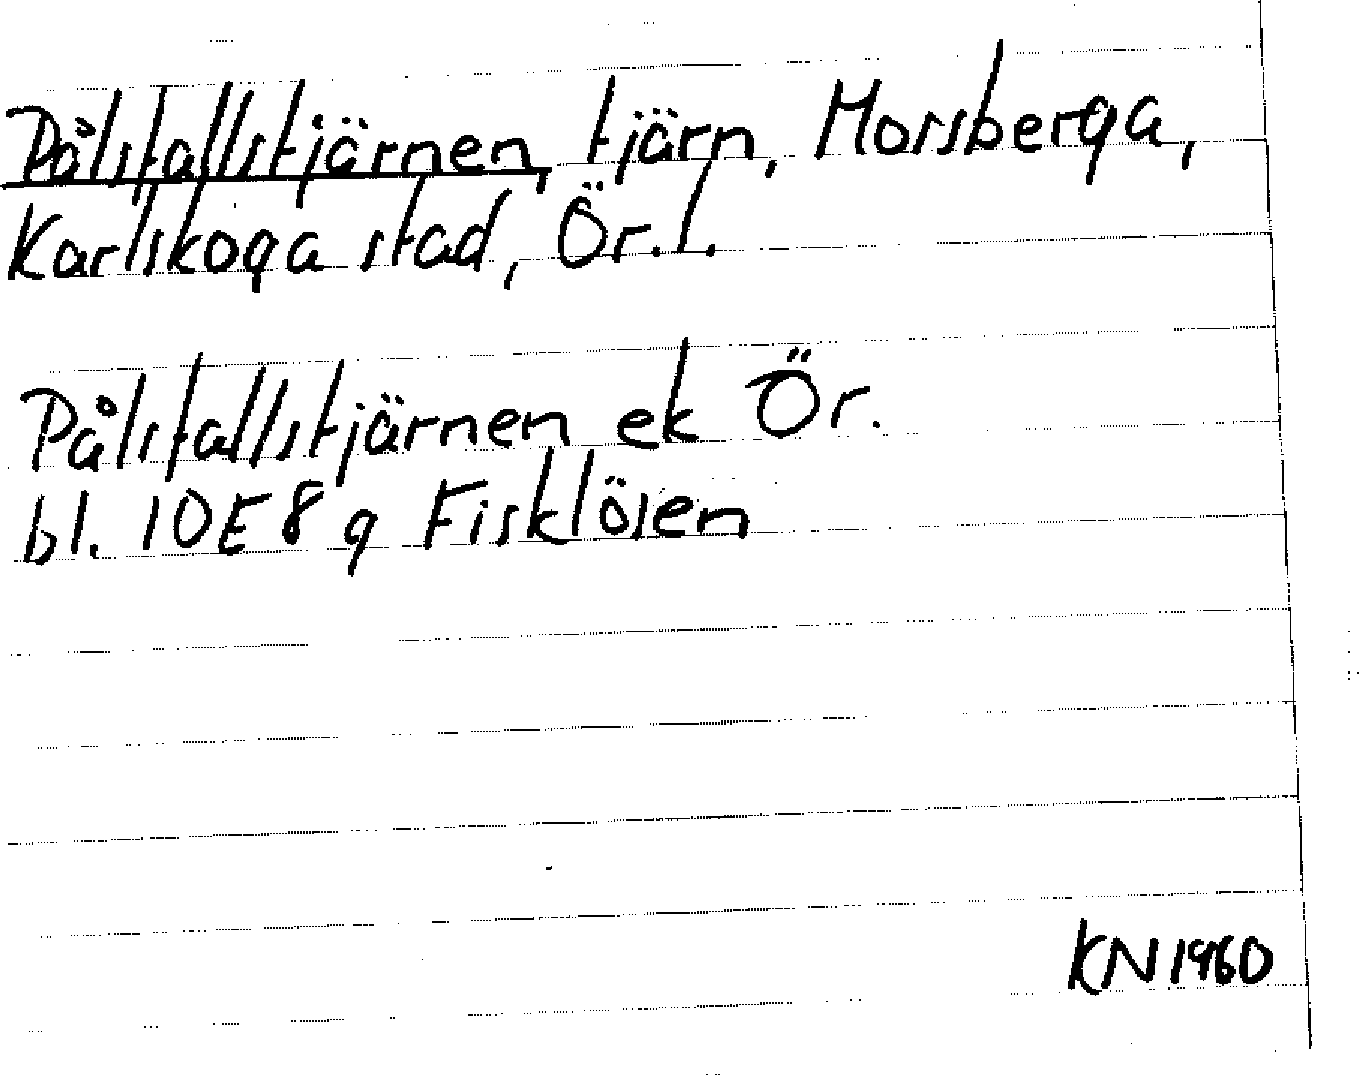 Pålsfallstjärnen, tjärn, Morsberga,
Karlskoga stad, Ör. l.
Pålsfallstjärnen ek Ör.
bl. 10E 8 g Fisklösen
KN 1960